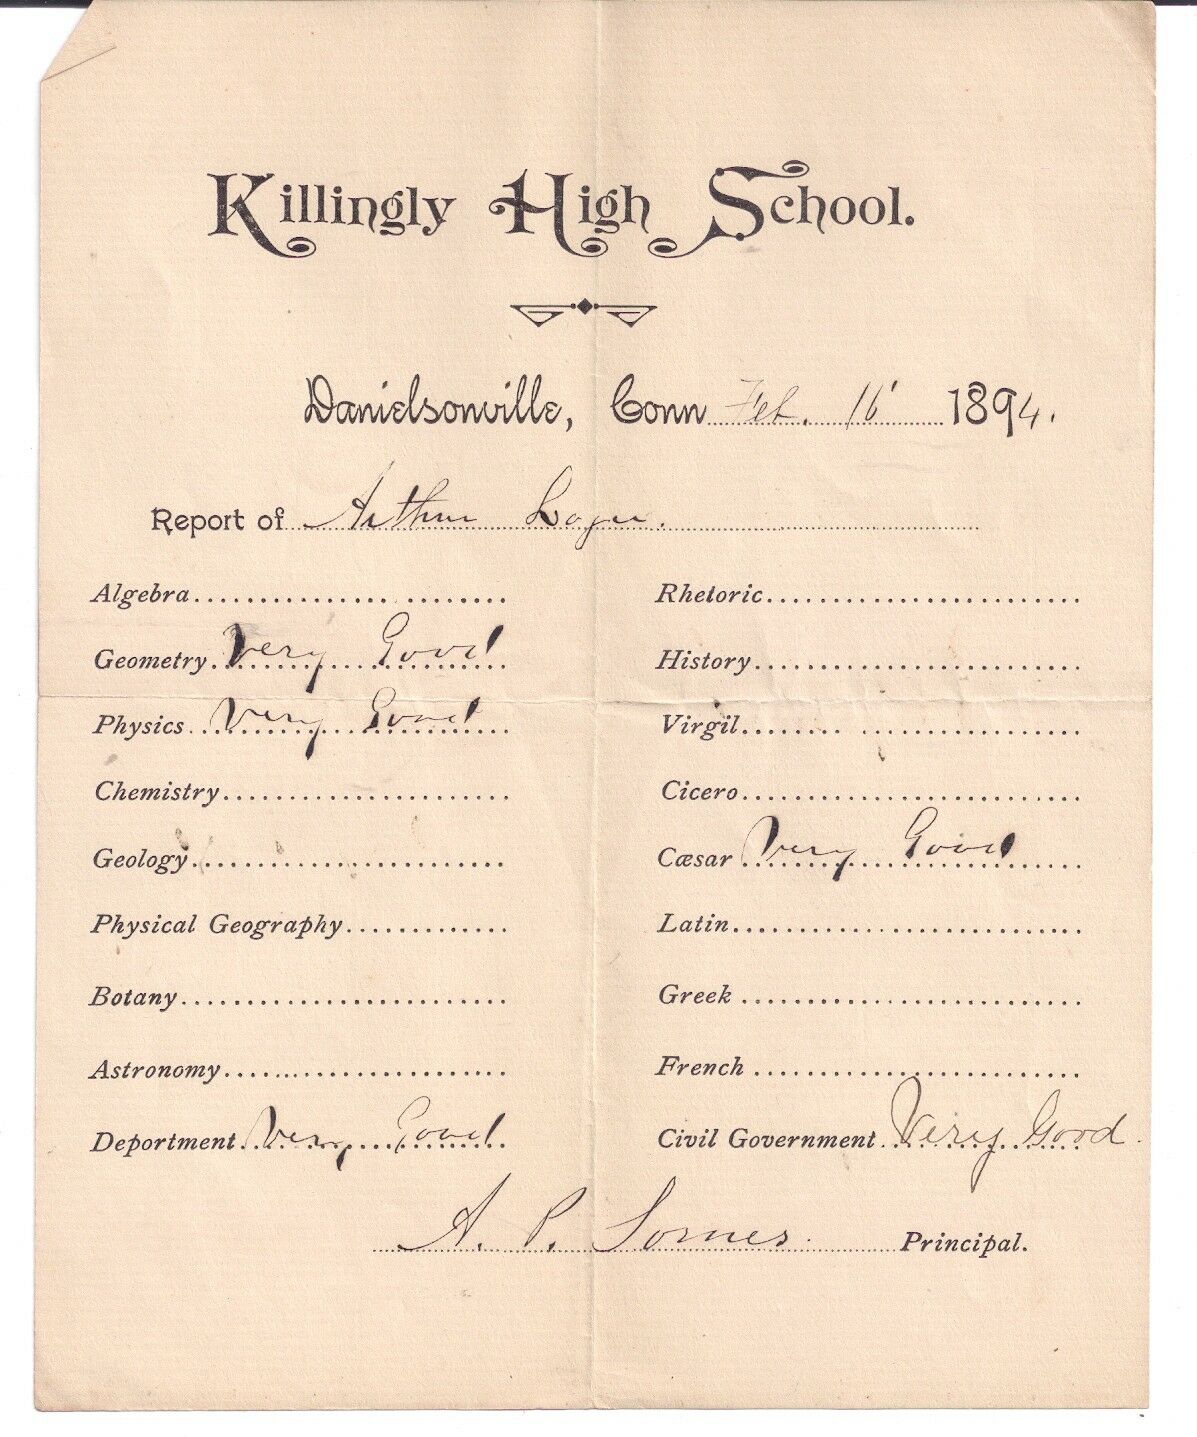 Killingly High School.
Danielsonville, Conn Feb. 16 1894.
Report of Arthur
Algebra
Rhetoric
Geometry Very Good
History
Physics Very Good
Virgil
Chemistry
Cicero
Geology
Cæsar Very Good
Physical Geography
Latin
Botany
Greek
Astronomy
French
Deportment Very Good
Civil Government Very Good.
A. P. Somes Principal.